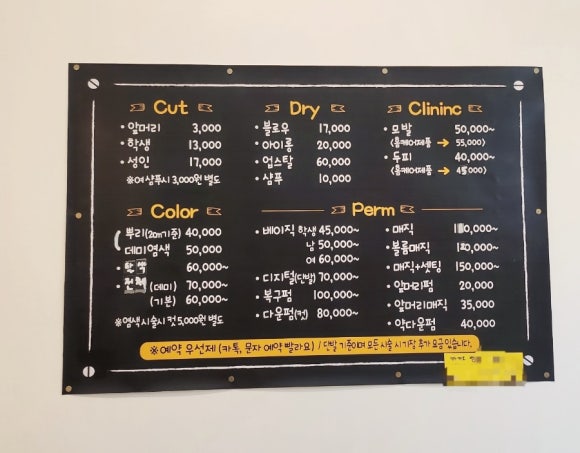 Cut
앞머리 3,000
학생 13,000
성인 17,000
※여 샴푸시 3,000원 별도
Dry
볼로우 17,000
아이롱 20,000
업스탈 60,000
샴푸 10,000
Clininc
모발 50,000~
(홈케어제품 → 55,000)
두피 40,000~
(홈케어제품 → 45,000)
Color
뿌리(2cm기준) 40,000
데미염색 50,000
60,000~
(데미) 70,000~
(기본) 60,000~
※염색시술시 컷 5,000원 별도
Perm
베이직 학생 45,000~
남 50,000~
여 60,000~
디지털(단발) 70,000~
복구펌 100,000~
다운펌(컷) 80,000~
매직
볼륨매직
매직+셋팅 150,000~
앞머리펌 20,000
앞머리매직 35,000
악다운펌 40,000
※예약 우선제 (카톡, 문자 예약 빨라요) / 단발 기준이며 모든 시술 시 기장 추가 요금 있습니다.